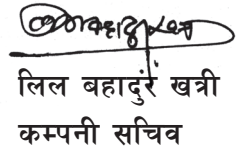 लिल बहादुरं खत्री
कम्पनी सचिव